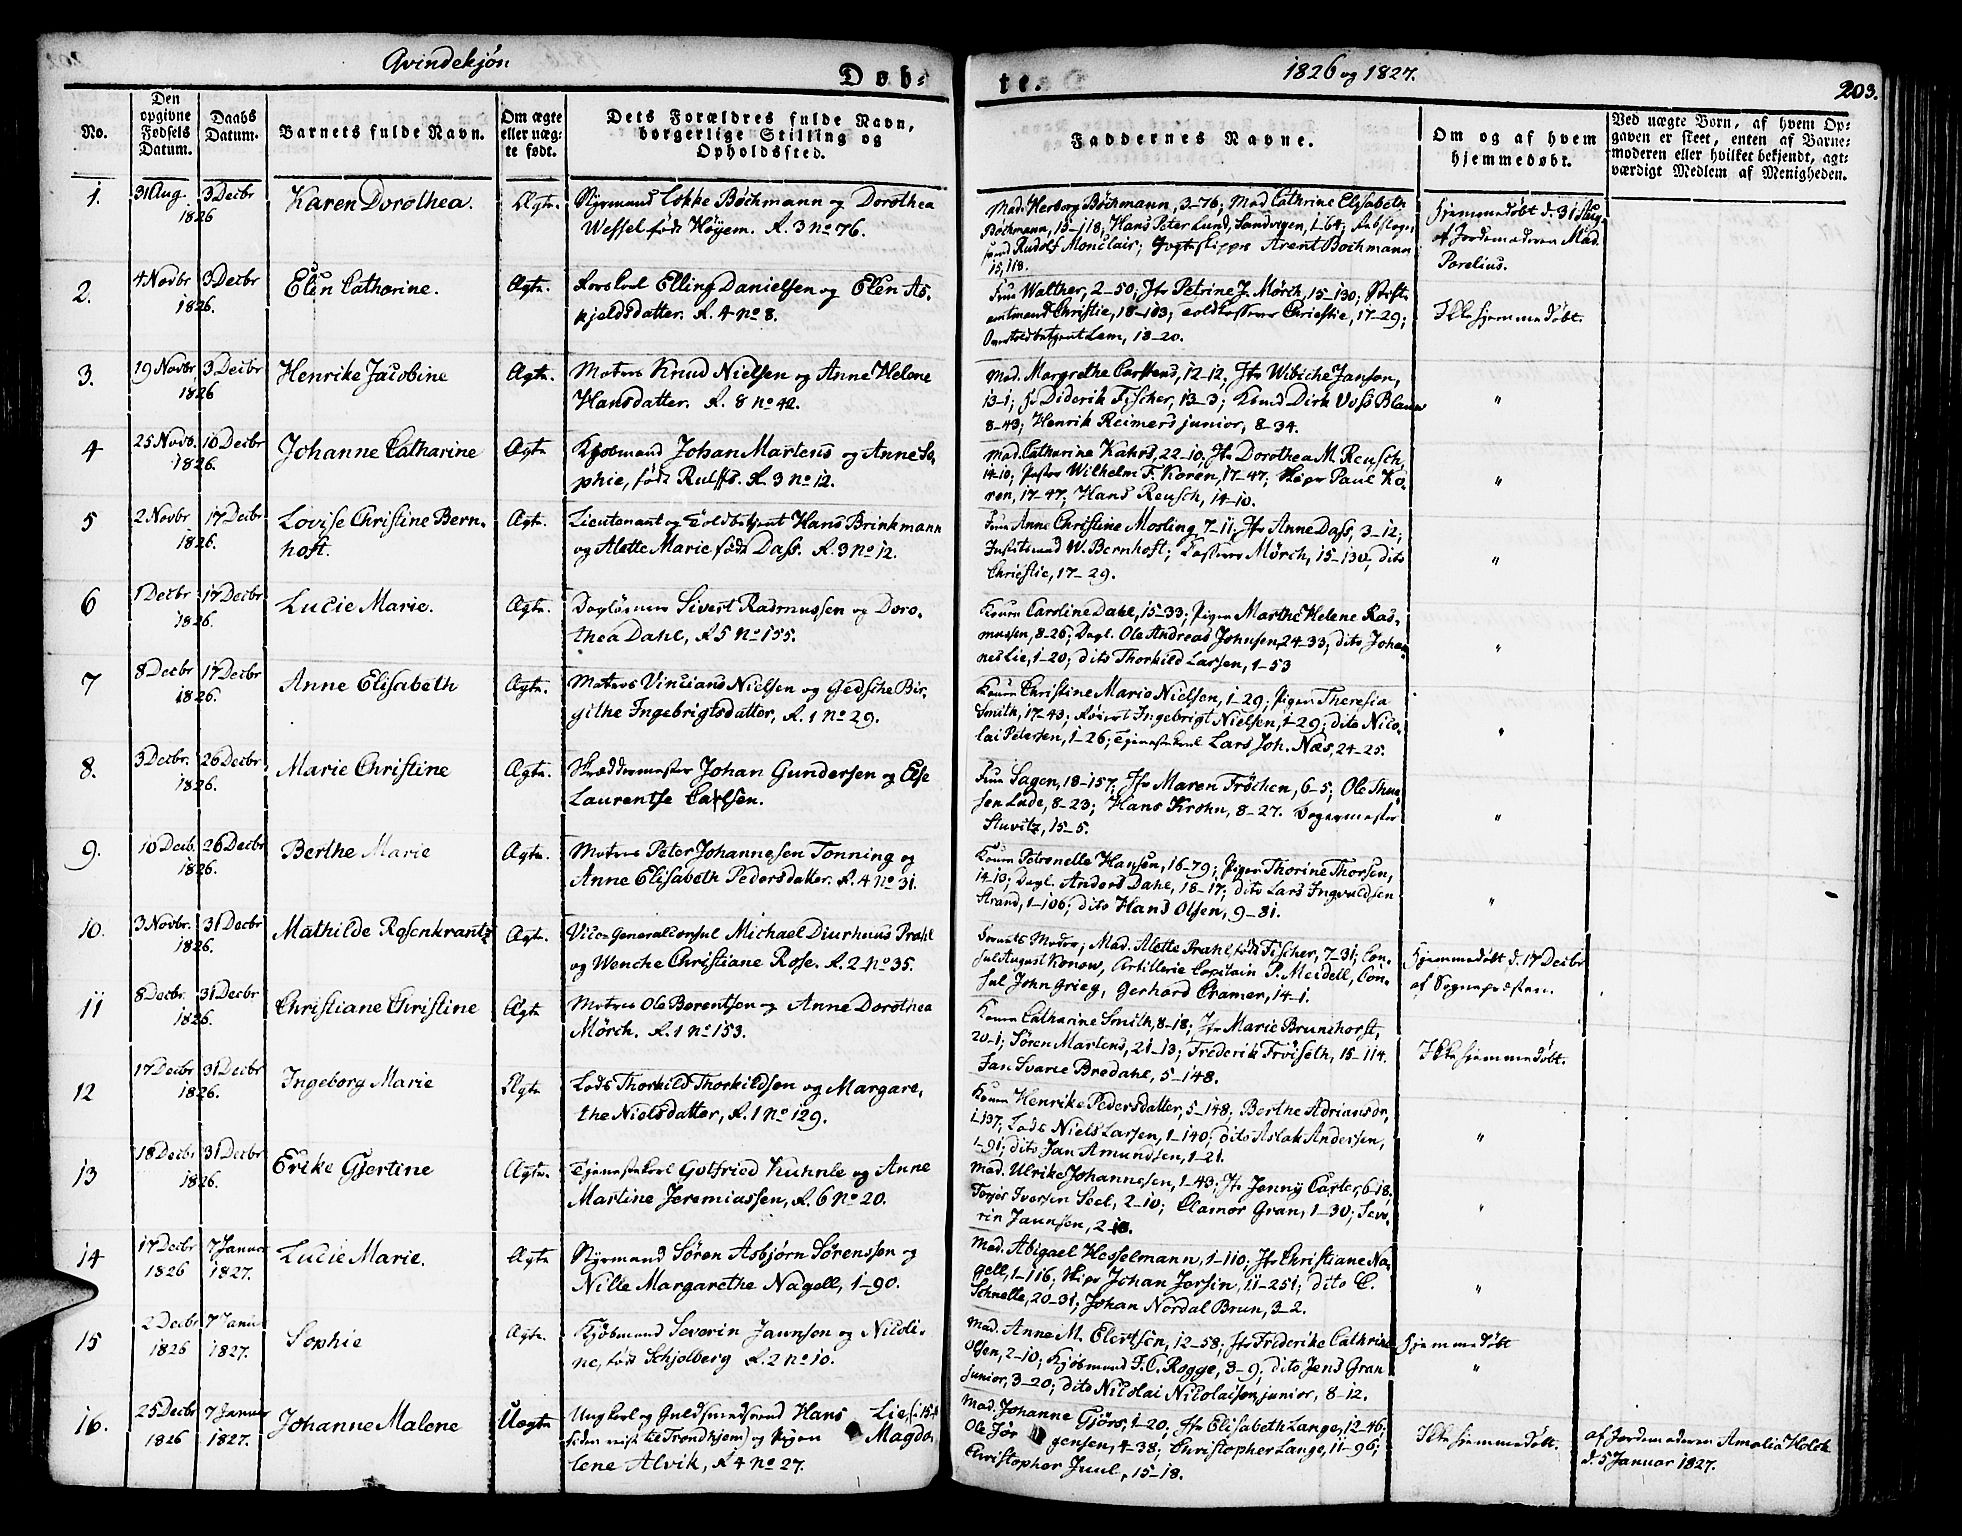 Qvindekjøn
Døb=
te.
1826 og 1827.
203.
No.
Den opgivne Fødsels Datum.
Daabs Datum.
Barnets fulde Navn.
Om ægte eller uæg= te født.
Dets Forældres fulde Navn, borgerlige Stilling og Opholdssted.
Faddernes Navne.
Om og af hvem hjemmedøbt.
Ved uægte Børn, af hvem Op=
gaven er skeet, enten af Barne=
moderen eller hvilket bekjendt, agt=
værdigt Medlem af Menigheden.
1. 31 Aug. 3 Decbr 1826 Karen Dorothea. Ægte.
Styrmand Cokke Bøchmann og Dorothea
Wessel født Høyem. R. 3 No 76.
Mad. Herborg Bøchmann, 3-76; Mad Cathrine Elisabeth
Bochmann, 15-118; Hans Peter Lund, Sandvigen, 1-64;
Rudolf Monclair; Arent Bochmann
15, 118.
Hjemmedøbt d. 31 Aug
af Jordemoderen Mad.
Porelius.
2. 4 Novbr 3 Decbr 1826. Elen Catharine. Ægte.
Elling Danielsen og Elen As-
kjeldsdatter. R. 4 No 8.
Fru Walther, 2-50; Jfr Petrine J. Mörch, 15-130; Stift-
amtmand Christie, 18-103; Toldkasserer Christie, 17-29;
Overtoldbetjent Lem, 13-20.
Ikke hjemmedøbt.
3. 19 Novbr 3 Decbr 1826 Henrike Jacobine Ægte.
Matros Knud Nielsen og Anne Helene
Hansdatter. R. 8 No 42.
Mad. Margrethe Carstens, 12-12, Jfr Wibiche Jansen,
13-1; Hr Diderik Fischer, 13-3; Dirk Voss Blauw
8-43; Henrik Reimers junior, 8-34.
"
4 25 Novb. 10 Decbr 1826. Johanne Catharine Ægte.
Kjøbmand Johan Martens og Anne So,
phie, født Rulffs. R. 3 No 12.
Mad. Catharine Kahrs, 22-10, Jfr Dorothea M Reusch,
14-10; Wilhelm F. Koren, 17-47; Skipr Paul Ko-
ren, 17-47; Hans Reusch, 14-10.
"
5 2 Novbr 17 Decbr 1826. Lovise Christine Bern-
hoft. Ægte.
Lieutenant og Toldbetjent Hans Brinkmann
og Alette Marie født Dass. R. 3 No 12.
Fru Anne Christine Mosling, 7-11; Jfr Anne Dass, 3-12;
Justitsraad W. Bernhoft; Kasserer Mörch, 15-130, dito
Christie, 17-29.
"
6 1 Decbr 17 Decbr 1826. Lucie Marie. Ægte.
Dagløsner Sivert Rasmussen og Doro-
thea Dahl, R 5 No 155.
Konen Caroline Dahl, 15-33; Pigen Marthe Helene Ras-
mussen, 8-26; Dagl. Ole Andreas Johnsen, 24-33; dito Johan-
nes Lie, 1-20; dito Thorkild Larsen, 1-53
"
7 8 Decbr 17 Decbr 1826. Anne Elisabeth Ægte.
Matros Vincians Nielsen og Gedsche Bir,
githe Ingebrigtsdatter, R. 1 No 29.
Konen Christine Marie Nielsen, 1-29; Pigen Theresia
Smith, 17-43; Ingebrigt Nielsen, 1-29; dito Nico-
lai Petersen, 1-26; Tjenestekarl Lars Joh. Næs, 24-25.
"
8. 3 Decbr. 26 Decbr 1826. Marie Christine Ægte.
Skræddermester Johan Gundersen og Else
Laurentse Carlsen.
Fru Sagen, 18-157; Jfr Maren Fröchen, 6-5; Ole Thue-
sen Lade, 8-23; Hans Krohn, 8-27. Bagermester
Stuvitz, 15-5.
"
9. 10 Decb. 26 Decbr 1826. Berthe Marie Ægte.
Matros Peter Johannesen Tonning og
Anne Elisabeth Pedersdatter. R. 4 No 31.
Konen Petronelle Hansen, 16-79; Pigen Thorine Thorsen,
14-13; Dagl. Anders Dahl, 18-17; dito Lars Ingvaldsen
Strand, 1-106; dito Hans Olsen, 9-81.
"
10. 3 Novbr. 31 Decbr 1826. Mathilde Rosenkrantz Ægte.
Vice Generalconsul Michael Diurhuus Prahl
og Wenche Christiane Rose. R. 2 No 35.
Barnets Moder; Mad. Alette Prahl, født Fischer, 7-31; Con-
sul August Konow, Artillerie Capitain P. Meidell, Con-
sul John Grieg, Gerhard Cramer, 14-1.
Hjemmedøbt d. 17 Decbr
af Sognepresten.
11 8 Decbr. 31 Decbr 1826. Christiane Christine Ægte
Matros Ole Berentsen og Anne Dorothea
Mörch. R. 1 No 153.
Konen Catharine Smith, 8-18; Jfr Marie Brunshorst,
20-1; Søren Martens, 21-13; Frederik Froiseth, 15-114.
Jan Svarie Bredahl, 5-148.
Ikke hjemmedøbt.
12 17 Decbr 31 Decbr 1826. Ingeborg Marie Ægte.
Lods Thorkild Thorkildsen og Margare,
the Nielsdatter, R. 1 No 129.
Konen Henrike Pedersdatter, 5-148; Berthe Adriansdr,
1-137; Lods Niels Larsen, 1-140; dito Aslak Andersen,
1-91; dito Jan Amundsen, 1-21.
"
13 18 Decbr 31 Decbr 1826. Erike Gjertine Ægte.
Tjenestekarl Gotfried Kuhnle og Anne
Martine Jeremiassen, R. 6 No 20.
Mad. Ulrike Johannesen, 1-43; Jfr Jenny Carter, 6-18.
Torjer Iversen Seel, 2-10; Clamor Gran, 1-30; Seve-
rin Jaunsen, 2-10.
"
14 17 Decbr 1826 7 Januar 1827. Lucie Marie. Ægte
Styrmand Søren Asbjørn Sørensen og
Nille Margarethe Nagell, 1-90.
Mad. Abigael Hesselmann, 1-110; Jfr Christiane Na-
gell, 1-116; Skipr Johan Jersin, 11-251; dito C.
Schnelle, 20-31; Johan Nordal Brun, 3-2.
"
15 2 Decbr 1826 7 Janu 1827. Sophie Ægte.
Kjøbmand Severin Jaunsen og Nicoli-
ne, født Schjelberg R. 2 No 10.
Mad. Anne M. Elertsen, 12-58; Jfr Frederike Cathrine
Olsen, 2-10; Kjøbmand J. C. Rogge, 3-9; dito Jens Gran
junior, 3-20; dito Nicolai Nicolaisen junior, 8-12.
Hjemmedøbt
"
16. 25 Decbr 1826 7 Januar 1827. Johanne Malene Uægte
Ungkarl og Guldsmedsvend Hans Lie,
siden reist til Trondhjem) og Pigen Magda,
lene Alvik, R 4 No 27.
Mad. Johanne Gjörs, 1-20, Jfr Elisabeth Lange, 12-46;
Ole Jør gensen, 4-38; Christopher Lange, 11-96;
Christopher Juul, 15-18.
Ikke hjemmedøbt.
af Jordemoderen Amalia Holck
d. 5 Januar 1827.